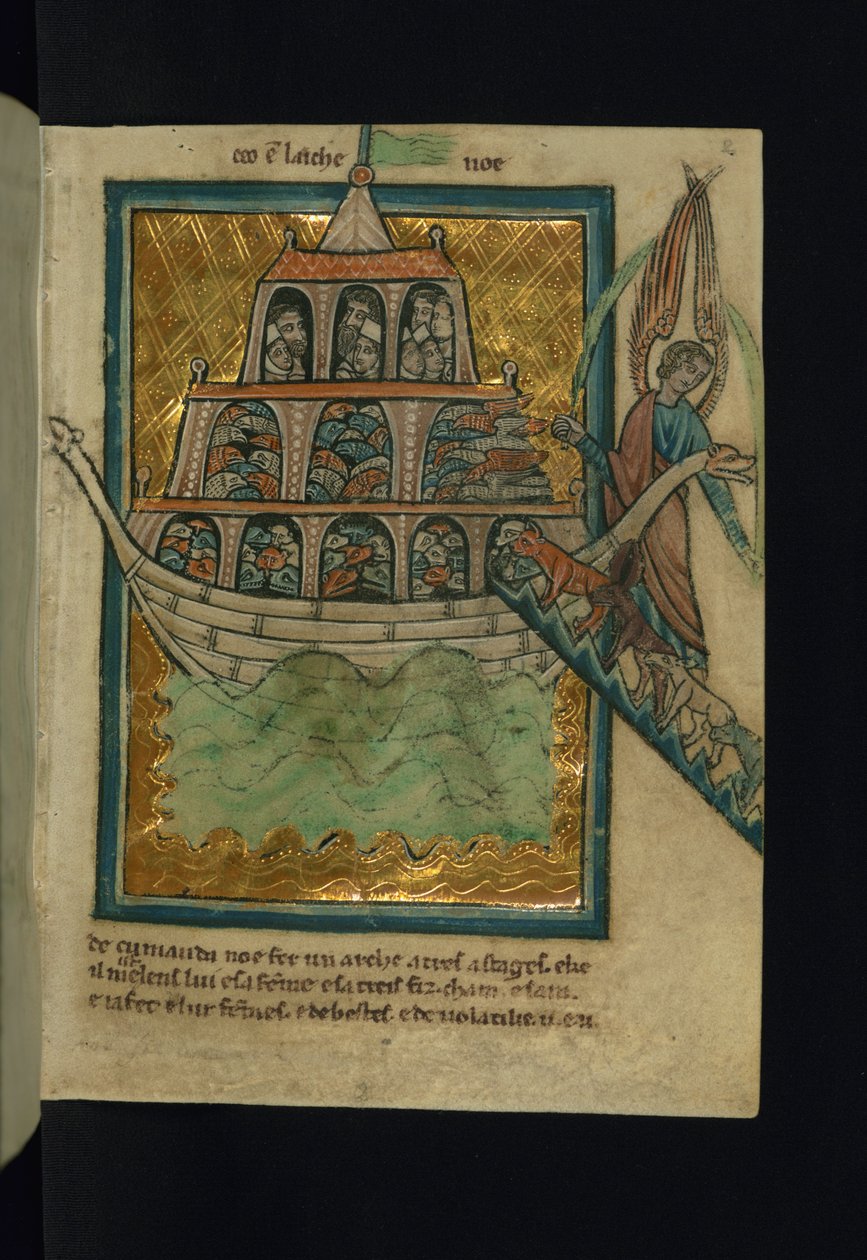 ceo ē larche noe
de cumanda noe fere un arche a tres astages. eke
il mesiens lui e sa fēme e sa treis fiz. cham. e sam.
e iafet e lur fēmes. e de bestes. e de volatilie. u. e. u.